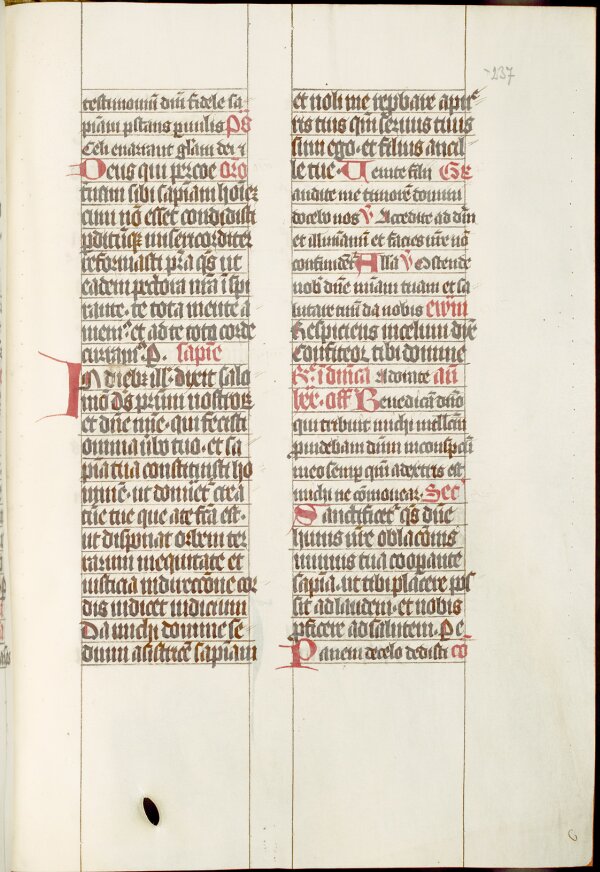 237
testimoniū dn̄i fidele sa
piam p̄stans ꝑuulis Ps̄
Celi enarrant gl̄am dei ⁊
Deus qui per coe Or̄o
t̄nam tibi sapiam hoīēʒ
cum nō esset condidisti
ꝑditūqꝫ misericorditer
reformasti pra q̄s ut
eadem pectora nr̄a īspi
rante te tota mente a
mem⁹ et ad te toto corde
curram⁹ P. sapīe
In dieb⁹ ill̄ dixit salo
mō Ds̄ prūm nostroꝝ
et dn̄e mīe · qui fecisti
omnia ūbo tuo · et sa
pīa tua constituisti ho
minē · ut domīet creā
tūe tue que a te fcā est ·
ut disponat orbem ter
rarum in equitate et
iusticia in directiōne cor
dis iudicet iudicium
Da michi domine se
dium asistricē sapīam
et noli me rep̄bare a pue
ris tuis qm̄ seruus tuus
sum ego · et filius ancil
le tue · Uenite filii Gr̄
audite me timorē domini
docebo uos V̄ Accedite ad dn̄
et illumīamī et facies ur̄e nō
confundent̄ Allā V̄ Ostende
nob̄ dn̄e mīam tuam et sa
lutare tuū da nobis ewm̄
Respiciens in celum dn̄e
Confiteor tibi domine
R̄ i dn̄ica Adorate añ
lxx · off̄ Benedicā dn̄o
qui tribuit michi intellc̄m
ꝓuidebam dn̄m in cōspc̄u
meo semꝑ qm̄ a dextris est
michi ne cōmouear · Secᵃ
Sanctificet̄ q̄s dn̄e
huius ur̄e oblac̄onis
munus tua cooꝑante
sapīa · ut tibi placere pos
sit ad laudem · et nobis
ꝓficere ad salutem · Pe
Panem de celo dedisti cō